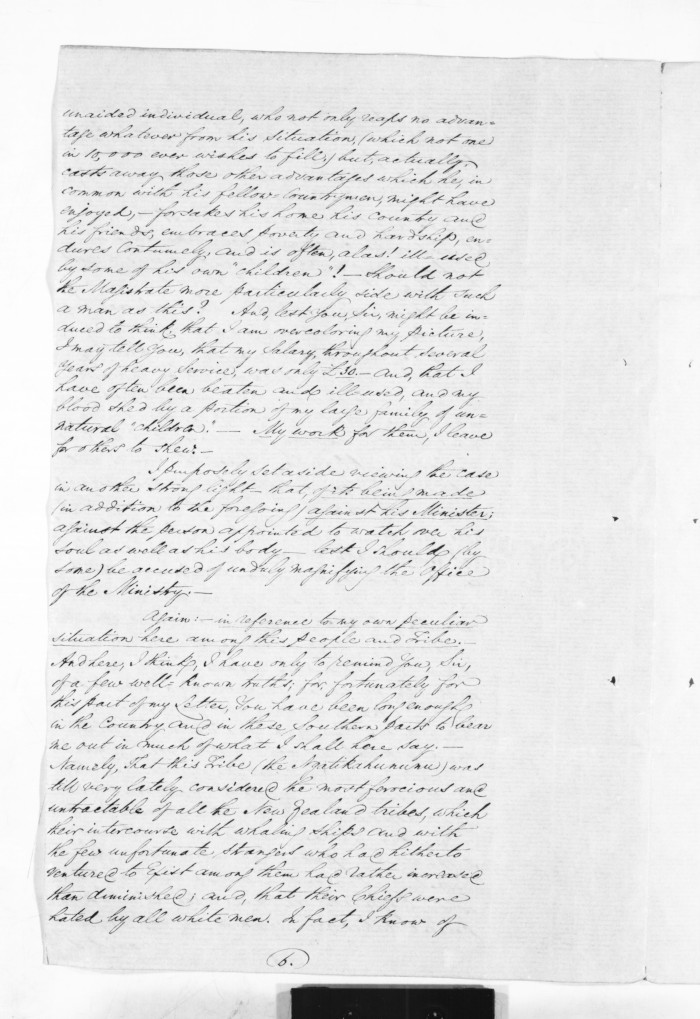 unaided individual, who not only reaps no advan=
tage whatever from his situation, (which not one
in 10,000 ever wishes to fill,) but, actually,
casts away those other advantages which he, in
common with his fellow-Countrymen, might have
enjoyed,—forsakes his home his Country and
his friends, embraces poverty and hardship, en=
dures Contumely, and is often, alas! ill-used
by some of his own "children"!— Should not
the Magistrate more particularly side with such
a man as this? And, lest You, Sir, might be in=
duced to think, that I am overcoloring my picture,
I may tell You, that my Salary, throughout several
Years of heavy Service, was only £30.— And, that I
have often been beaten and ill-used, and my
blood shed by a portion of my large family of un=
natural "children".— My work for them, I leave
for others to shew.—
I purposely set aside viewing the case
in another strong light—that, of its being made
(in addition to the foregoing) against his Minister;
against the person appointed to watch over his
soul as well as his body— lest I should (by
some) be accused of unduly magnifying the Office
of the Ministry.—
Again:— in reference to my own peculiar
situation here among this people and Tribe.—
And here, I think, I have only to remind You, Sir,
of a few well-known truths; for, fortunately for
this part of my Letter, You have been long enough
in the Country and in these Southern parts to bear
me out in much of what I shall here say.—
Namely, That this Tribe (the Ngatikahununu) was
till very lately considered the most ferocious and
untractable of all the New Zealand tribes, which
their intercourse with whaling ships and with
the few unfortunate strangers who had hitherto
ventured to Exist among them had rather increased
than diminished; and, that their Chiefs were
hated by all white men. In fact, I know of
6.